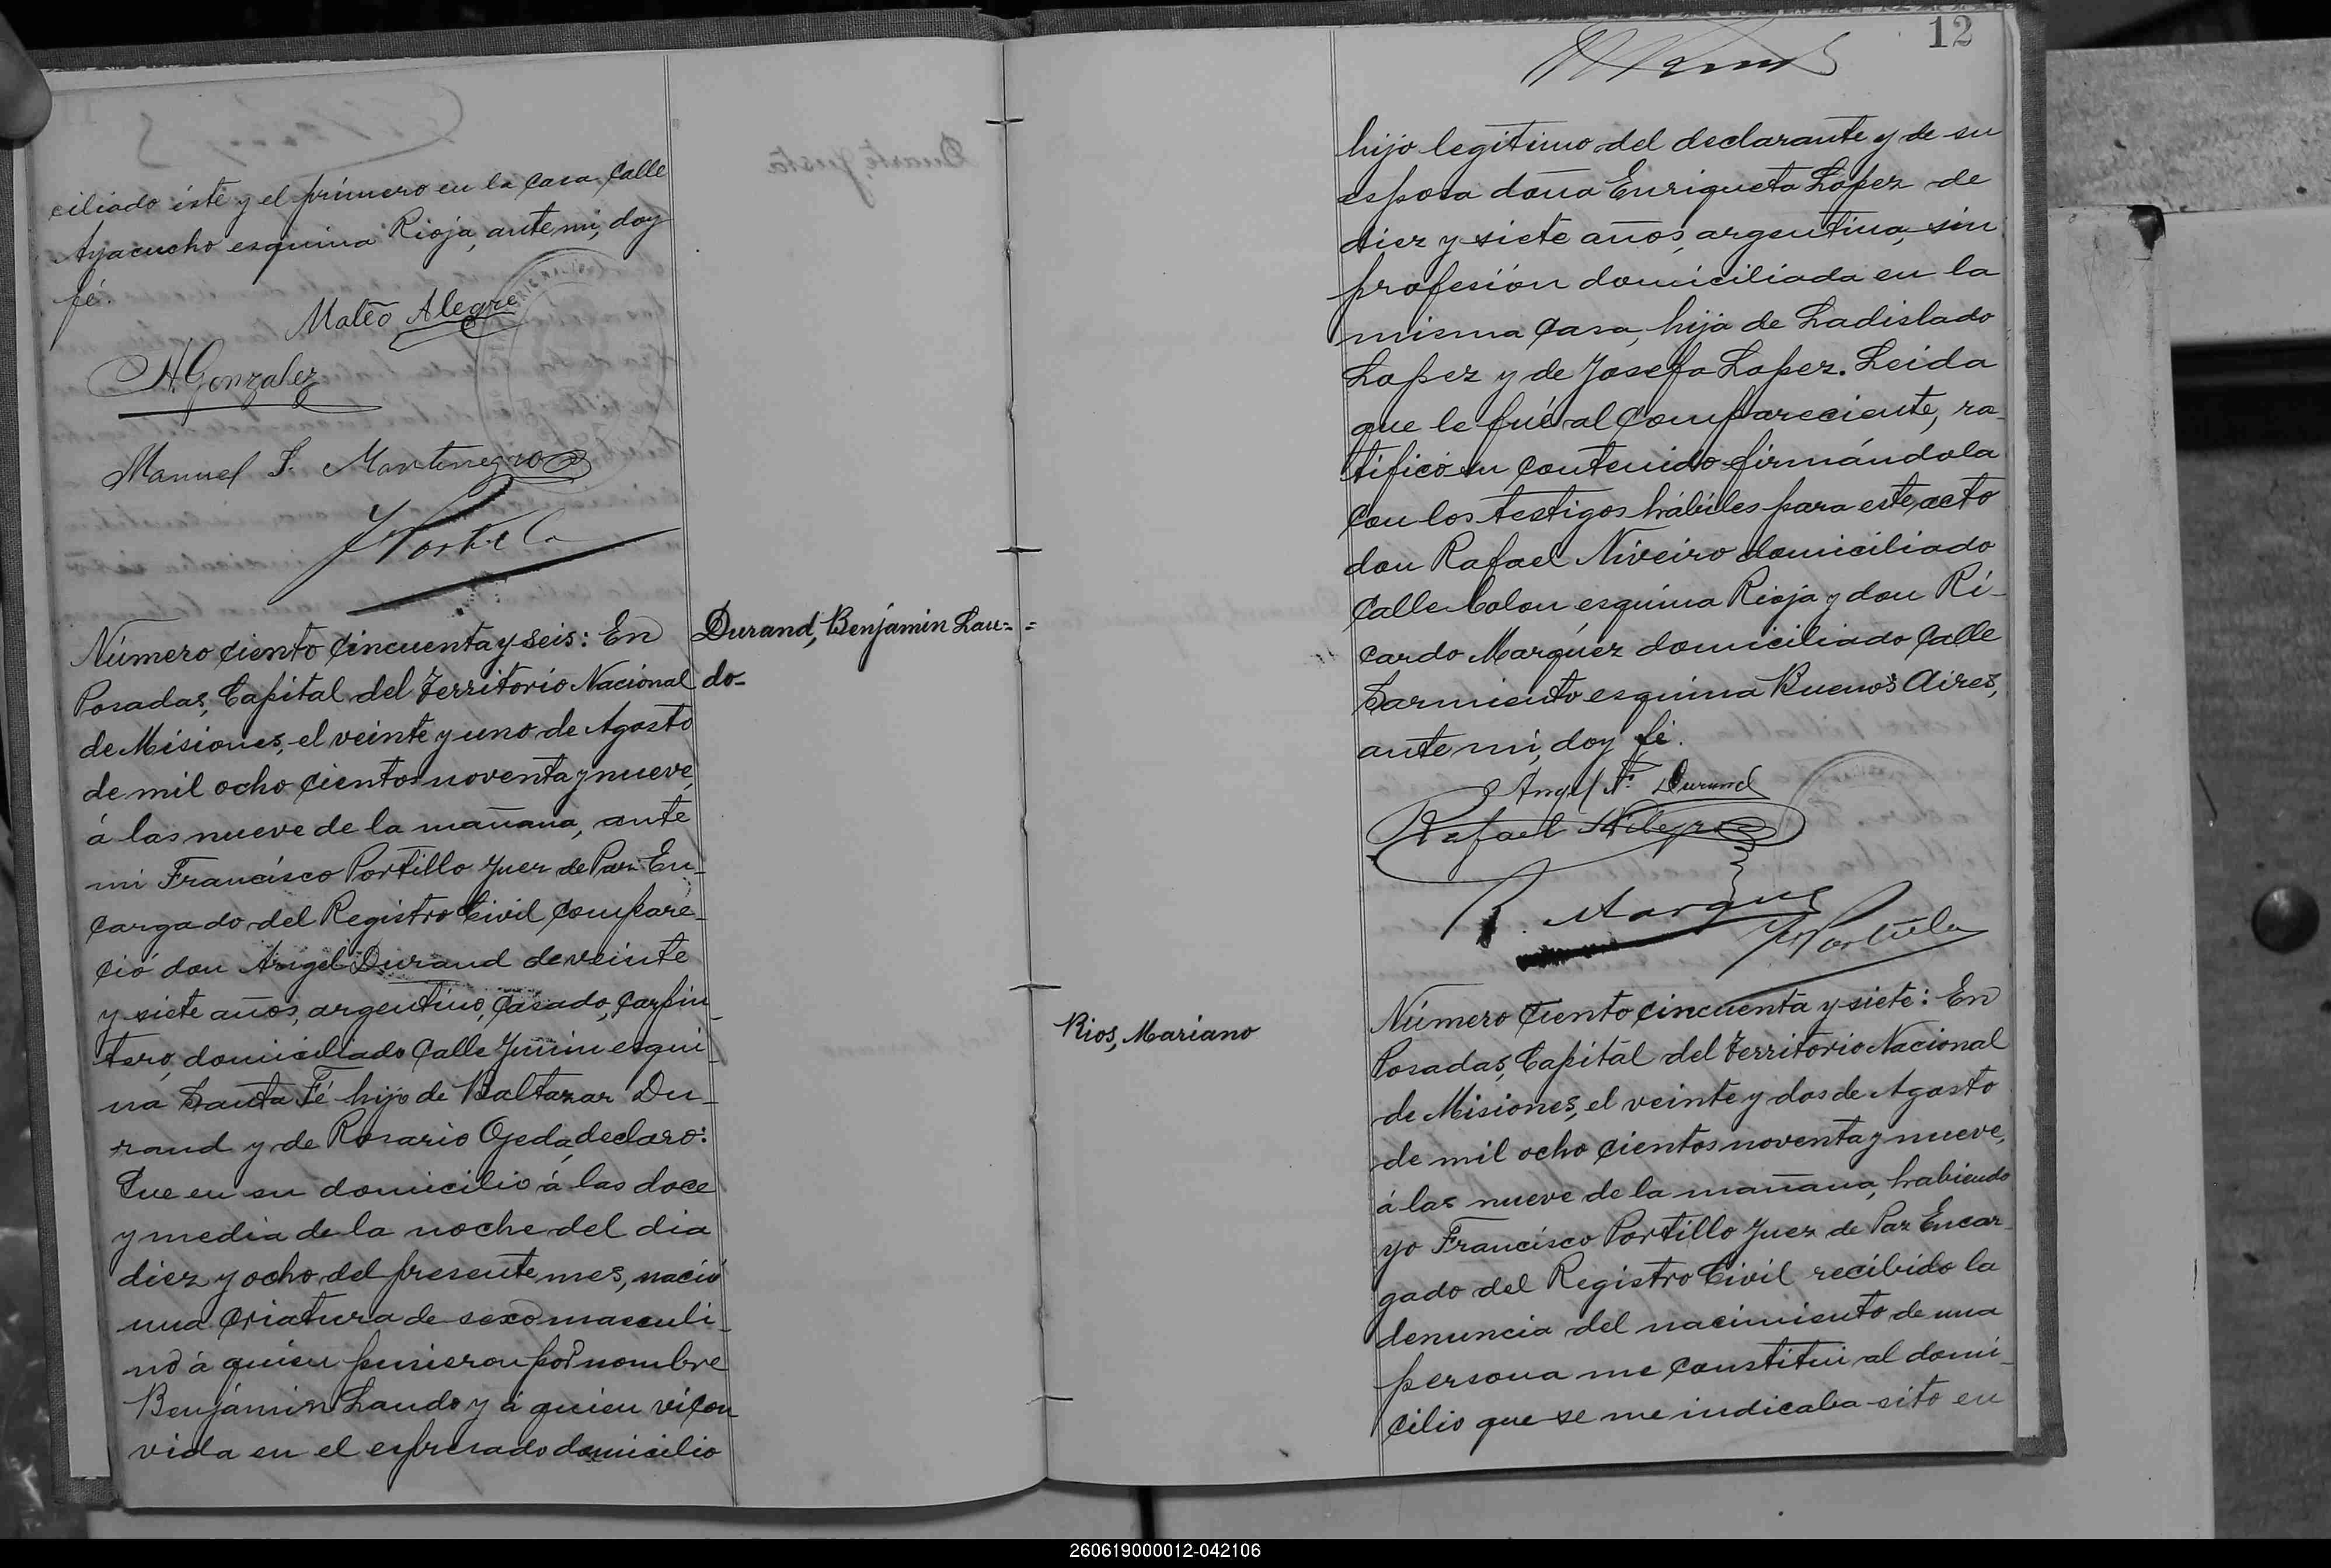 ciliado éste y el primero en la casa calle
Ayacucho esquina Rioja, ante mi, doy
fé.
Mateo Alegre
H. Gonzalez
Manuel S. Montenegro
Número ciento cincuenta y seis: En
Posadas, Capital del Territorio Nacional
de Misiones, el veinte y uno de Agosto
de mil ocho cientos noventa y nueve,
á las nueve de la mañana, ante
mi Francisco Portillo Juez de Paz En-
cargado del Registro Civil compare-
ció don Angel Durand de veinte
y siete años, argentino, casado, carpin-
tero, domiciliado calle Junin esqui-
na Santa Fé hijo de Baltazar Du-
rand y de Rosario Ojeda, declaro:
Que en su domicilio á las doce
y media de la noche del dia
diez y ocho del presente mes, nació
una criatura de sexo masculi-
no á quien pusieron por nombre
Benjámin Laudo y á quien vi con
vida en el espresado domicilio
Durand, Benjamin Lau=
do-
12
hijo legítimo del declarante y de su
esposa doña Enriqueta Lopez de
diez y siete años, argentina, sin
profesión domiciliada en la
misma casa, hija de Ladislado
Lopez y de Josefa Lopez. Leida
que le fué al compareciente, ra-
tificó su contenido firmándola
con los testigos hábiles para este acto
don Rafael Niveiro domiciliado
calle Colon esquina Rioja y don Ri-
cardo Marquez domiciliado calle
Sarmiento esquina Buenos Aires,
ante mi, doy fé.
Angel F. Durand
Rafael Niveyro
R. Marquez
F. Portillo
Rios, Mariano
Número ciento cincuenta y siete: En
Posadas, Capital del Territorio Nacional
de Misiones, el veinte y dos de Agosto
de mil ocho cientos noventa y nueve,
á las nueve de la mañana, habiendo
yo Francisco Portillo Juez de Paz Encar-
gado del Registro Civil recibido la
denuncia del nacimiento de una
persona me constitui al domi-
cilio que se me indicaba sito en
260619000012-042106